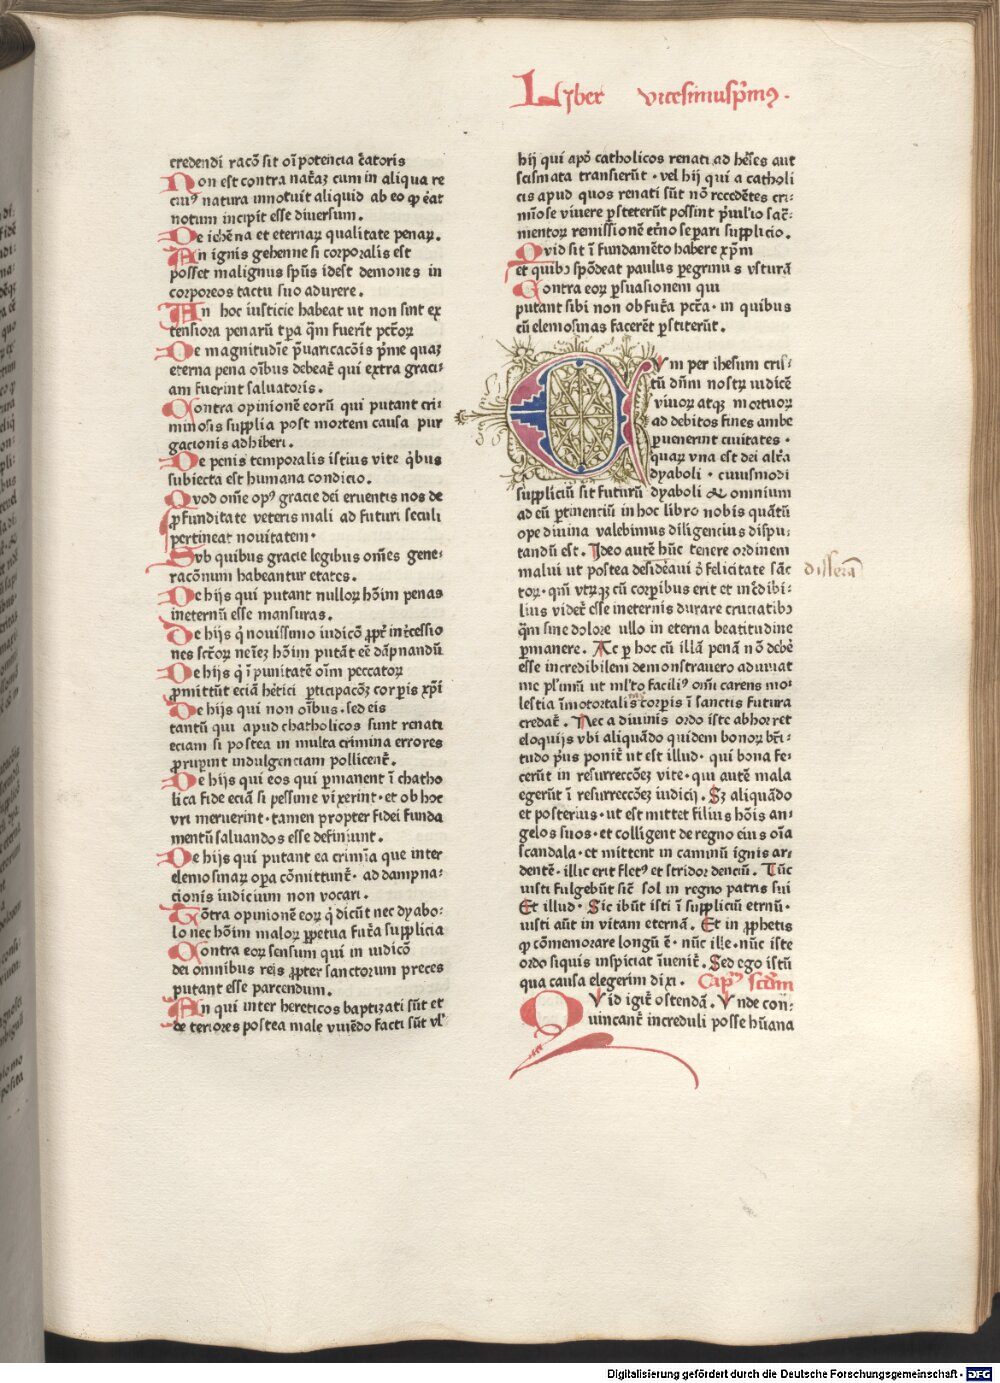 Lyber vicesimusp̄mꝰ.
credendi racōsit oīpotencia c̄atoris
Non est contra nat̄aꝫ cum in aliqua re
ciuꝰ natura innotuit aliquid ab eo ꝙ ēat
notum incipit esse diuersum.
De iehēna et eternaꝝ qualitate penaꝝ.
An ignis gehenne si corporalis est
posset malignus spūs idest demones in
corporeos tactu suo adurere.
An hoc iusticie habeat ut non sint ex
tensiora penarū tp̄a qm̄ fuerīt pctōꝝ
De magnitudīe p̄uaricacōīs p̄me quaꝫ
eterna pena oībus debeat̄ qui extra graci⸗
am fuerint saluatoris.
Contra opinionē eorū qui putant cri⸗
minosis supplia post mortem causa pur
gacionis adhiberi.
De penis temporalis istius vite q̄bus
subiecta est humana condicio.
Quod om̄e opꝰ gracie dei eruentis nos de
ꝓfunditate veteris mali ad futuri seculi
pertineat nouitatem.
Sub quibus gracie legibus om̄es gene⸗
racōnum habeantur etates.
De hijs qui putant nulloꝝ hōīm penas
ineternū esse mansuras.
De hijs q̄ nouissimo iudicō ꝓpt̄ int̄cessio
nes sctōꝝ neīeꝫ hōīm putāt eē dāpnandū
De hijs q̄ īpunitatē oīm peccatoꝝ
ꝓmittūt eciā hētici ꝑticipacōꝫ corꝑis xp̄i
De hijs qui non oībus. sed eis
tantū qui apud chatholicos sunt renati
eciam si postea in multa crimina errores
ꝓruꝑint indulgenciam pollicent̄.
De hijs qui eos qui ꝑmanent ī chatho
lica fide eciā si pessime vixerint. et ob hoc
vri meruerint. tamen propter fidei funda
mentū saluandos esse definiunt.
De hijs qui putant ea crimīa que inter
elemosinaꝝ oꝑa cōmittunt̄. ad dampna⸗
cionis iudicium non vocari.
Cōtra opinionē eoꝝ q̄ dicūt nec dyabo⸗
lo nec hōīm maloꝝ ꝑpetua fut̄a supplicia
Contra eoꝝ sensum qui in iudicō
dei omnibus reis ꝓpter sanctorum preces
putant esse parcendum.
An qui inter hereticos baptizati sūt et
de teriores postea male viuēdo facti sūt vl̄
hij qui apō catholicos renati ad hēses aut
scismata transierūt. vel hij qui a catholi
cis apud quos renati sūt nō recedētes cri⸗
mīose viuere ꝑsteterūt possint p̄uil̄io sac̄⸗
mentoꝝ remissionē etn̄o separi supplicio.
Quid sit ī fundamēto habere xp̄m
et quibꝰ spōdeat paulus ꝑ egrinus vsturā
Contra eoꝝ ꝑsuasionem qui
putant sibi non obfut̄a pcta. in quibus
cū elemosinas facerēt ꝑstiterūt.
Cvm per ihesum cris⸗
tū dn̄m nostꝝ iudicē
viuoꝝ atqꝫ mortuoꝝ
ad debitos fines ambe
ꝑuenerint ciuitates.
quaꝝ vna est dei alt̄a
dyaboli. cuiusmodi
suppliciū sit futurū dyaboli & omnium
ad eū ꝑtinenciū in hoc libro nobis quātū
ope diuina valebimus diligencius dispu⸗
tandū est. Ideo autē hūc tenere ordinem
malui ut postea deside̅aui ꝙ felicitate sāc
toꝝ. qm̄ vtꝝqꝫ cū corꝑibus erit et inc̄dibi⸗
lius videt̄ esse ineternis durare cruciatibꝰ
qm̄ sine dolore ullo in eterna beatitudine
ꝑmanere. Ac ꝑ hoc cū illā penā nō debē
esse incredibilem demonstrauero adiuuat
me pl̄imū ut ml̄to faciliꝰ om̄i carens mo⸗
lestia īmotortalis corꝑis ī sanctis futura
credat̄. Nec a diuinis ordo iste abhorret
eloquijs vbi aliquādo quidem bonoꝝ bt̄i⸗
tudo p̄us ponit̄ ut est illud. qui bona fe⸗
cerūt in resurreccōeꝫ vite. qui autē mala
egerūt ī resurreccōeꝫ iudicij. Sꝫ aliquādo
et posterius. ut est mittet filius hōis an⸗
gelos suos. et colligent de regno eius oīa
scandala. et mittent in caminū ignis ar⸗
dentē. illic erit fletꝰ et stridor denciū. Tūc
iusti fulgebūt sic̄ sol in regno patris sui
Et illud. Sic ibūt isti ī suppliciū etrnū.
iusti aūt in vitam eternā. Et in ꝓphetis
ꝙ cōmemorare longū ē. nūc ille. nūc iste
ordo siquis inspiciat īuenit̄. Sed ego istū
qua causa elegerim dixi. Capꝰ scdm
Quid igit̄ ostendā. Vnde con⸗
uincant̄ increduli posse hūana
disserā
Digitalisierung gefördert durch die Deutsche Forschungsgemeinschaft - DFG